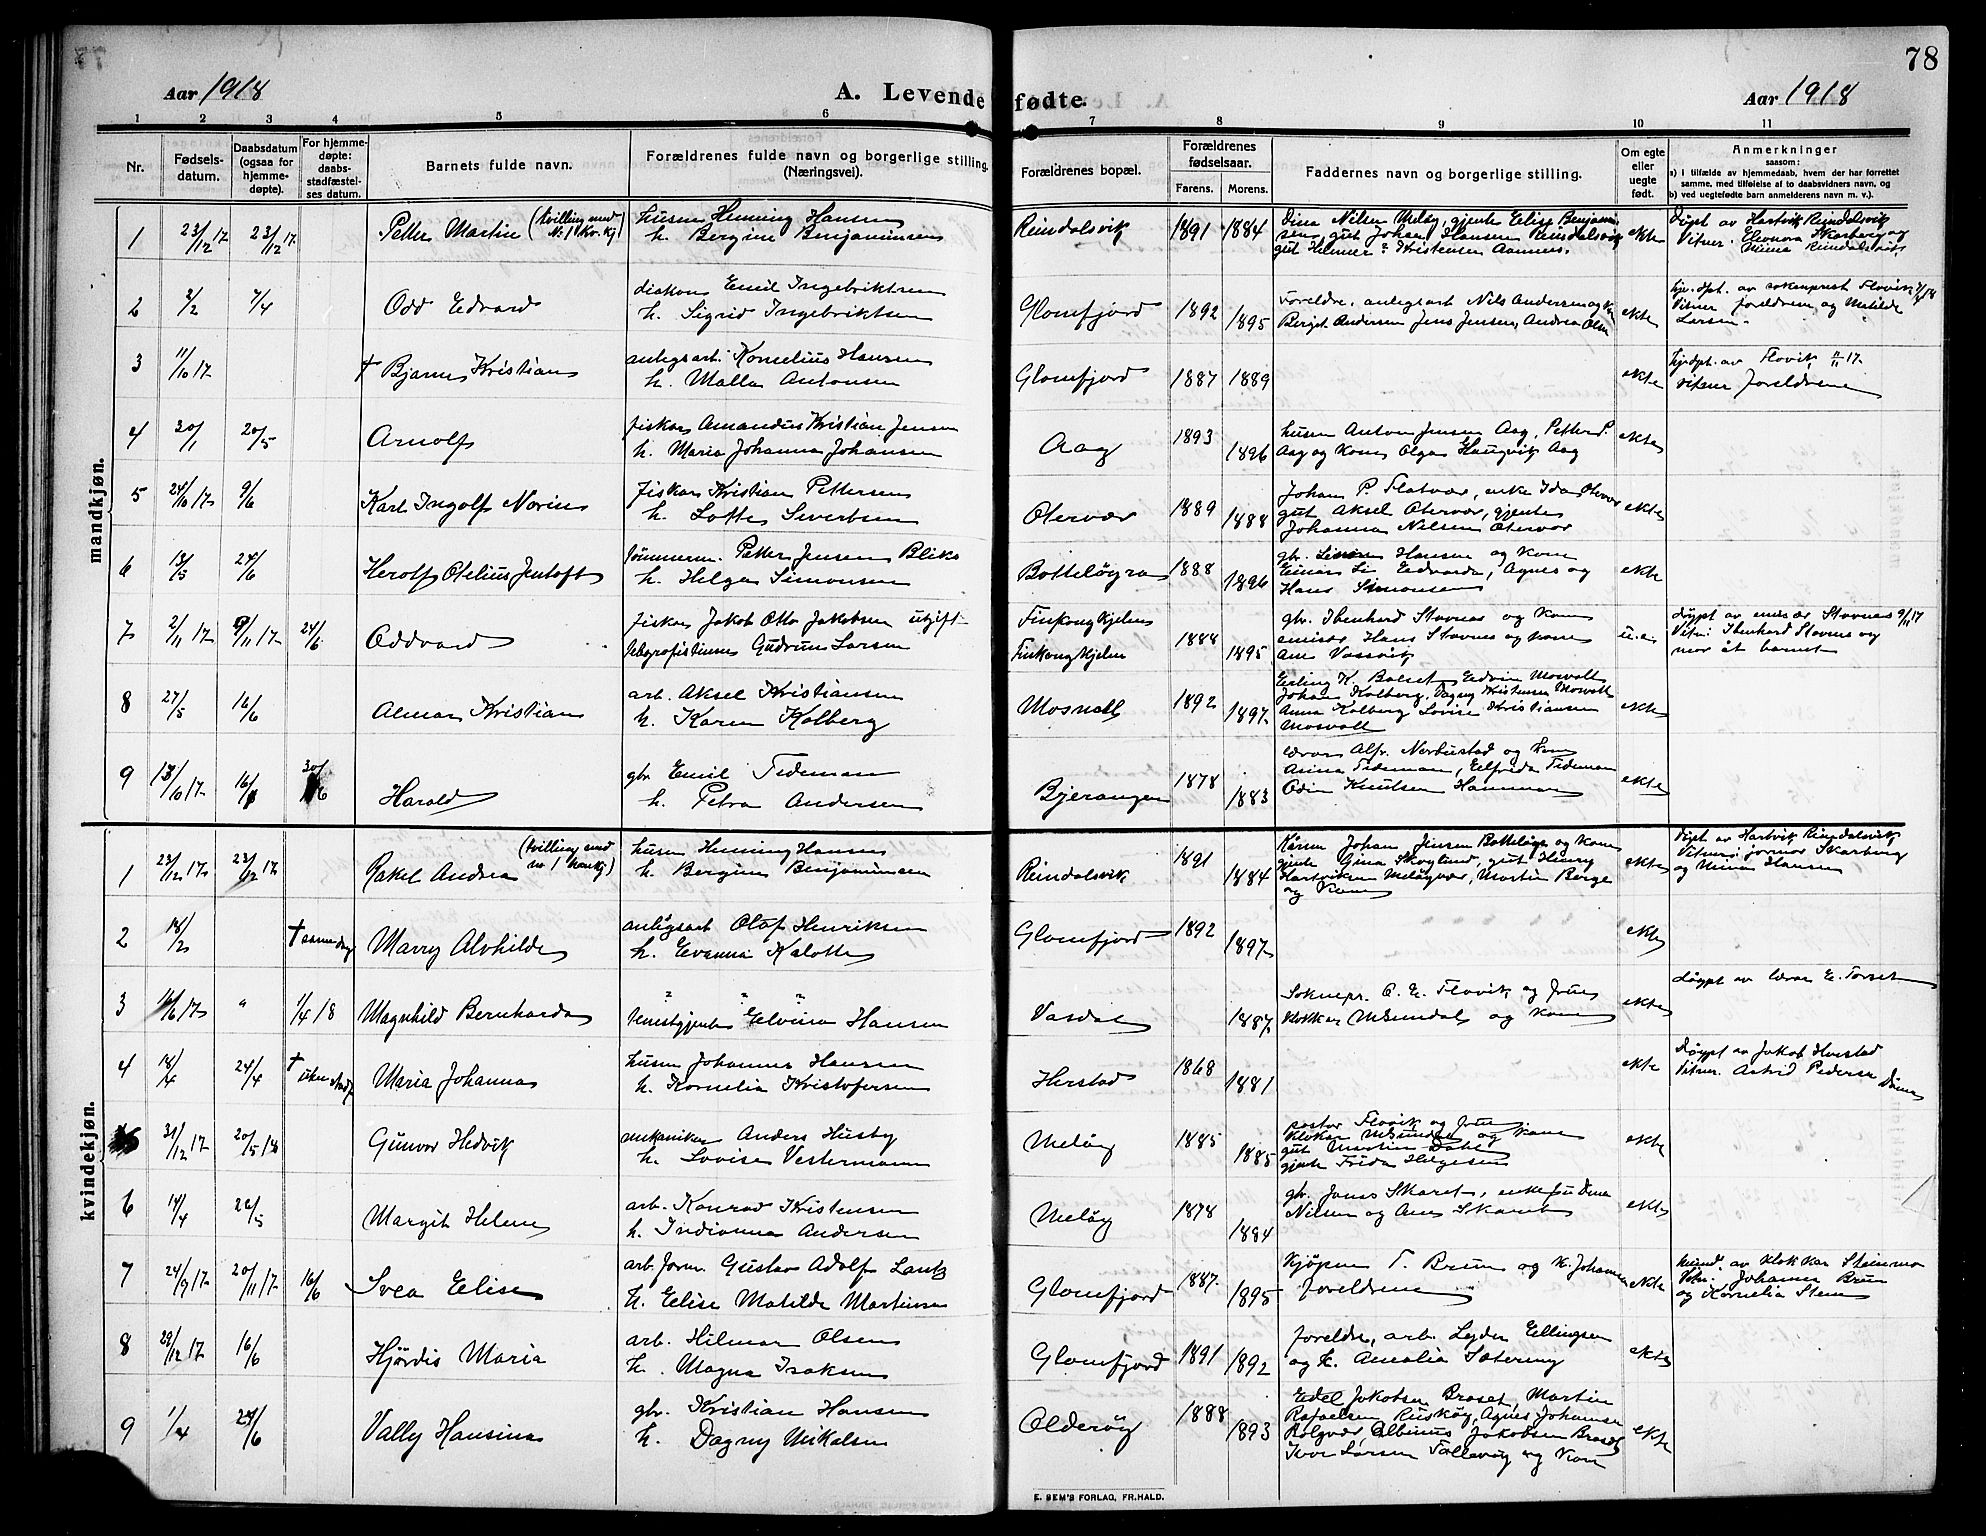 78
Aar 1918
A. Levende fødte.
Aar 1918
1 2 3 4 5 6 7 8 9 10 11
Nr.
Fødsels-
datum.
Daabsdatum
(ogsaa for
hjemme-
døpte).
For hjemme-
døpte:
daabs-
stadfæstel-
ses datum.
Barnets fulde navn.
Forældrenes fulde navn og borgerlige stilling.
(Næringsvei).
Forældrenes bopæl.
Forældrenes
fødselsaar.
Farens. Morens.
Faddernes navn og borgerlige stilling.
Om egte
eller
uegte
født.
Anmerkninger
saasom:
a) I tilfælde av hjemmedaab, hvem der har forrettet
samme, med tilføielse af to daabsvidners navn, og
b) ved uegtefødte barn anmelderens navn m. v.)
mandkjøn.
1 23/12 17 23/12 17 Petter Martin (tvilling med
Nr. 1 kv. kj.)
husm Henning Hansen
h. Bergine Benjaminsen
Reindalsvik 1891 1884
Dina Nilsen Meløy, gjente Elise Benjamin
sen, gut Johan Hansen Reindalsvik
gut Helmer Kristensen Aamnes.
ekte
Døpt av Hartvik Reindalsvik
Vitner: Eleonora Skarberg og
Mina Reindalsvik
2 2/2 7/4 Odd Edvard
diakon Emil Ingebriktsen
h. Sigrid Ingebriktsen
Glomfjord 1892 1895
Foreldre, anlegsarb Nils Andersen og
Berget Andersen Jens Jensen, Andrea Olsen
ekte
hj. dpt. av sokneprest Flovik
Vitner foreldrene og Matilde
Larsen.
3 11/10 17 † Bjarne Kristian
anlegsarb. Kornelius Hansen
h. Malla Antonsen
Glomfjord 1887 1889
ekte
hjdpt. av Flovik 17.
vitner foreldrene
4 20/1 20/5 Arnolf
fiskar Amandus Kristian Jensen
h. Maria Johanna Johansen
Aag 1893 1896
husm Anton Jensen Aag, Petter P.
Aag og kone Olga Haugvik Aag
ekte
5 24/10 17 9/6 Karl Ingolf Norin
fiskar Kristian Pettersen
h. Lotte Sivertsen
Otervær 1889 1888
Johan P. Flatvær, enke Ida Otervær
gut Aksel Otervær, gjente
Johanna Nilsen Otervær
ekte
6 13/5 24/6 Herolf Otelius Jentoft
tømmerm. Petter Jensen Bliks
h. Helga Simonsen
Botteløyra 1888 1896
gbr. Simon Hansen og kone
Einar Edvarda, Agnes og
Hans Simonsen
ekte
7 2/11 17 9/11 17 24/6 Oddvard
fiskar Jakob Otto Jakobsen utgift
telegrafistinne Gudrun Larsen
Finkonghjelen
Finkonghjelen
1888 1895
gbr. Ibenhard Stavnes og kone
emisær Hans Stavnes og kone
Ane Vassvik
u. e.
døypt av emisær Stavnes 9/11 17
Vitn: Ibenhard Stavnes og
mor åt barnet
8 27/5 16/6 Almar Kristian
arb. Aksel Kristiansen
h. Karen Kolberg
Mosvoll 1892 1897
Erling K. Bolset Edvin Mosvoll
Johan Kolberg, Dagny Kristensen Mosvoll
Anna Kolberg Lovise Kristiansen
Mosvoll
ekte
9 13/10 17 16/ 30/6 Harald
gbr Emil Tideman
h. Petra Andersen
Bjerangen 1878 1883
lærar Alfr. Nerbustad og kone
Anna Tideman, Elfrida Tideman
Odin Knutsen Hamman
ekte
kvindekjøn.
1 23/12 17 23/12 17 Rakel Andrea (tvilling med
nr 1 hankj)
husm Henning Hansen
h. Bergine Benjaminsen
Reindalsvik 1891 1884
Johan Jensen Botteløyr og kone
gjente Gina Skoglund, gut Henry
Hartviksen Meløyvær, Martin Berge
og kone
ekte
Døpt av Hartvik Reindalsvik
Vitner: jormor Skarberg
og Mina Hansen
2 18/2 † samme dag Marry Alvhilde
anlegsarb Olaf Henriksen
h. Evanna Kalotte
Glomfjord 1892 1897
ekte
3 /6 17 " 1/4 18 Magnhild Bernharda
" " "
tenestgjente Elvina Hansen
Vasdal 1887
Soknepr. C. E. Flovik og frue
klokkar M. Sundal og kone
ekte
døypt av lærar E. Torset
4 18/4 24/4 † Maria Johanna
husm Johannes Hansen
h. Kornelia Kristofersen
Herstad 1868 1881
ekte
Døypt av Jakob Herstad
Vitner. Astrid Pedersen
5 31/12 17 20/5 18 Gunvor Hedvik
mekaniker Anders Husby
h. Lovise Vestermann
Meløy 1885 1885
pastor Flovik og frue
klokkar M. Sundal og kone
gut Martin Dahl
gjente Frida Helgesen
ekte
6 14/4 26/5 Margit Helene
arb. Konrad Kristensen
h. Indianna Andersen
Meløy 1878 1884
gbr. Jonas Skaret, enkefru Dina
Nilsen og Ane Skaret
ekte
7 24/9 17 20/11 17 16/6 Svea Elise
arb.form. Gustav Adolf Lantz
h. Elise Matilde Martinsen
Glomfjord 1887. 1895
kjøpm T. Bruun og k. Johanna
foreldrene
ekte
av klokkar Steinmo
Vitn. Johanna Bruun
og Kornelia Steen
8 29/12 17 16/6 Hjørdis Maria
arb. Hilmar Olsen
h. Magna Isaksen
Glomfjord 1891 1892
foreldre, arb. Lyder Ellingsen
og k. Amalia Sætering
ekte
9 1/4 24/6 Vally Hansine
gbr. Kristian Hansen
h. Dagny Mikalsen
Olderøy 1888 1893
Edel Jakobsen Braset, Martin
Rafaelsen Ruskøy, Agnes Johansen
Rolgvær, Albinus Jakobsen Braset
Ivar Larsen Tollevøy og kone
ekte
E. SEM'S FORLAG, FR.HALD.